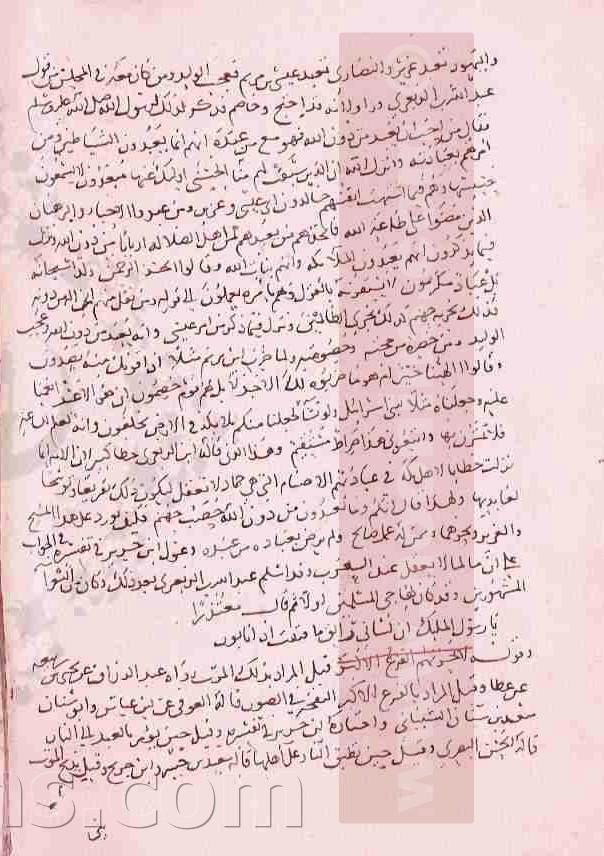 واليهود تعبد عزير والنصارى تعبد عيسى بن مريم فعجب الوليد ومن كان معه في المجلس من قول
عبد الله بن الزبعرى ورأوا أنه قد احتج وخاصم فذكر ذلك لرسول الله صلى الله عليه وسلم
فقال من أحب أن يعبد من دون الله فهو مع من عبده إنهم إنما يعبدون الشياطين ومن
أمرهم بعبادته وأنزل الله إن الذين سبقت لهم منا الحسنى أولئك عنها مبعدون لا يسمعون
حسيسها وهم فيما اشتهت أنفسهم خالدون أي عيسى وعزير ومن عبدوا الأحبار والرهبان
الذين مضوا على طاعة الله فاتخذهم من يعبدهم من أهل الضلالة أربابا من دون الله ونزل
فيما يذكرون أنهم يعبدون الملائكة وأنهم بنات الله وقالوا اتخذ الرحمن ولدا سبحانه
بل عباد مكرمون لا يسبقونه بالقول وهم بأمره يعملون إلى قوله ومن يقل منهم إني إله من دونه
فذلك نجزيه جهنم كذلك نجزي الظالمين ونزل فيما ذكر من أمر عيسى وأنه يعبد من دون الله وعجب
الوليد ومن حضره من حجته وخصومته ولما ضرب ابن مريم مثلا إذا قومك منه يصدون
وقالوا أآلهتنا خير أم هو ما ضربوه لك إلا جدلا بل هم قوم خصمون إن هو إلا عبد أنعمنا
عليه وجعلناه مثلا لبني إسرائيل ولو نشاء لجعلنا منكم ملائكة في الأرض يخلفون وإنه لعلم للساعة
فلا تمترن بها واتبعون هذا صراط مستقيم وهذا الذي قاله ابن الزبعرى خطأ كبير لأن الآية إنما
نزلت خطابا لأهل مكة في عبادتهم الأصنام التي هي جماد لا تعقل ليكون ذلك تقريعا وتوبيخا
لعابديها ولهذا قال إنكم وما تعبدون من دون الله حصب جهنم فكيف يورد على هذا المسيح
والعزير ونحوهما ومن له عمل صالح ولم يرض بعبادة من عبده وعول ابن جرير في تفسيره في الجواب
على أن ما لما لا يعقل عند العرب وقد أسلم عبد الله بن الزبعرى بعد ذلك وكان من الشعراء
المشهورين وقد كان يهاجي المسلمين أولا ثم قال معتذرا
يا رسول المليك إن لساني راتق ما فتقت إذ أنا بور
وقوله لا يحزنهم الفزع الأكبر قيل المراد بذلك الموت رواه عبد الرزاق عن يحيى بن ربيعة
عن عطا وقيل المراد بالفزع الأكبر النفخة في الصور قاله العوفي عن ابن عباس وأبو سنان
سعيد بن سنان الشيباني واختاره ابن جرير في تفسيره وقيل حين يؤمر بالعبد إلى النار
قاله الحسن البصري وقيل حين تطبق النار على أهلها قاله سعيد بن جبير وابن جريج وقيل حين يذبح الموت
بين
ns.com